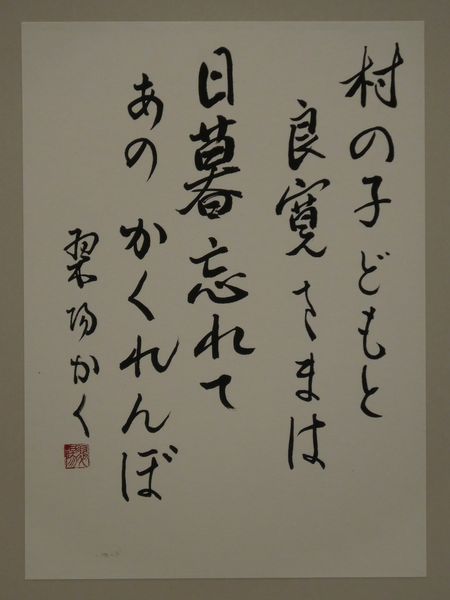 村の子どもと
良寛さまは
日暮忘れて
あのかくれんぼ
翠陽かく